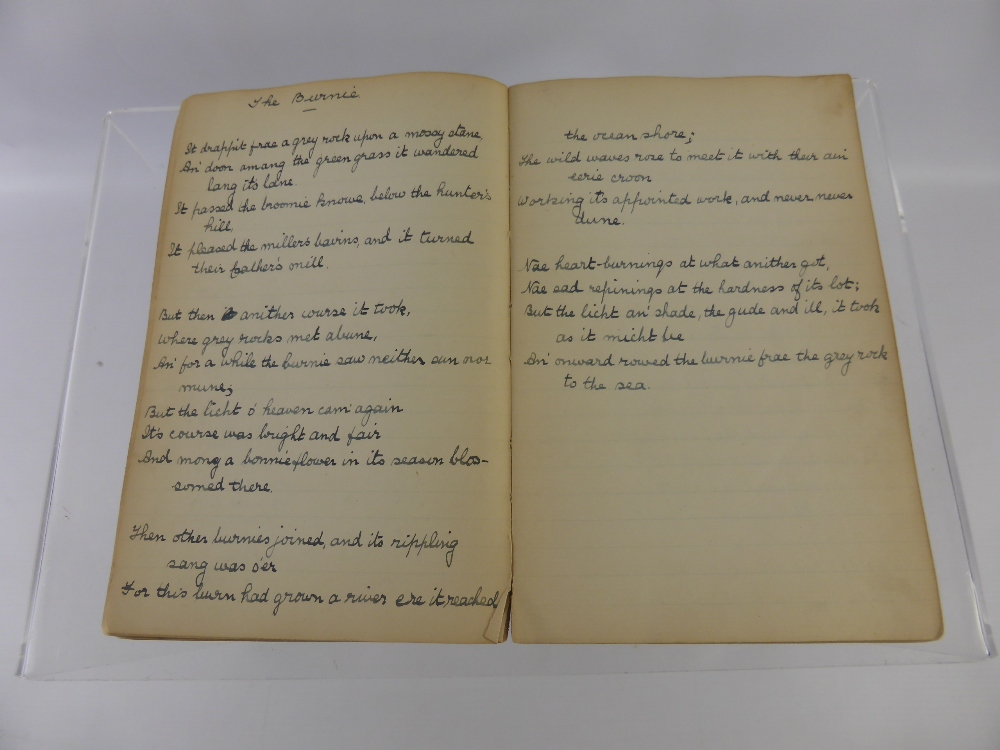 The Burnie.
It drappit frae a grey rock upon a mossy stane,
An' doon amang the green grass it wandered
lang its lane.
It passed the broomie knowe, below the hunter's
hill,
It pleased the miller's bairns, and it turned
their father's mill.
But then anither course it took,
where grey rocks met abune,
An' for a while the burnie saw neither sun nor
mune;
But the licht o' heaven cam' again
It's course was bright and fair
And mony a bonnie flower in its season blos-
somed there.
Then other burnies joined, and its rippling
sang was o'er
For this burn had grown a river ere it reached
the ocean shore;
The wild waves rose to meet it with their ain
eerie croon
Working its appointed work, and never never
dune.
Nae heart-burnings at what anither got,
Nae sad repinings at the hardness of its lot;
But the licht an' shade, the gude and ill, it took
as it micht be
An' onward rowed the burnie frae the grey rock
to the sea.